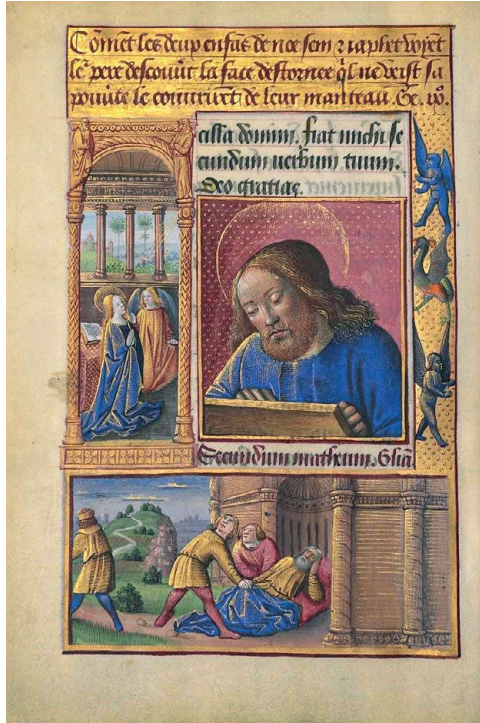 Co͞met les deux enfãs de noe sem ⁊ iaphet voyẽt
le᷑ pere descouũt la face destornee q̃l ne veist sa
pouũte le couurirẽt de leur manteau. Ge. ix᷎.
cilla domini. fiat michi se
cundum uerbum tuum.
Deo gratias.
Secundum matheum. Gliã.